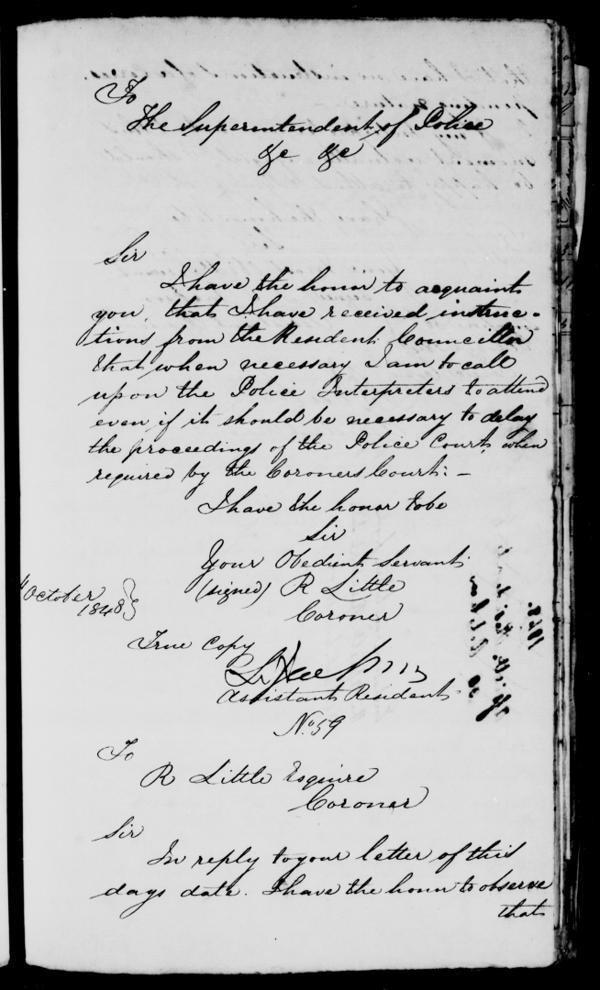 To
The Superintendent of Police
&c &c
Sir
I have the honor to acquaint
you, that I have received instruc-
tions from the Resident Councillor
that when necessary I am to call
upon the Police Interpreters to attend
even if it should be necessary to delay
the proceedings of the Police Court, when
required by the Coroners Court: -
I have the honor to be
Sir
Your Obedient Servant
(signed) R Little
Coroner
October
1848
True Copy
Assistant Resident
No. 59
To
R Little Esquire
Coroner
Sir
In reply to your letter of this
days date. I have the honor to observe
that